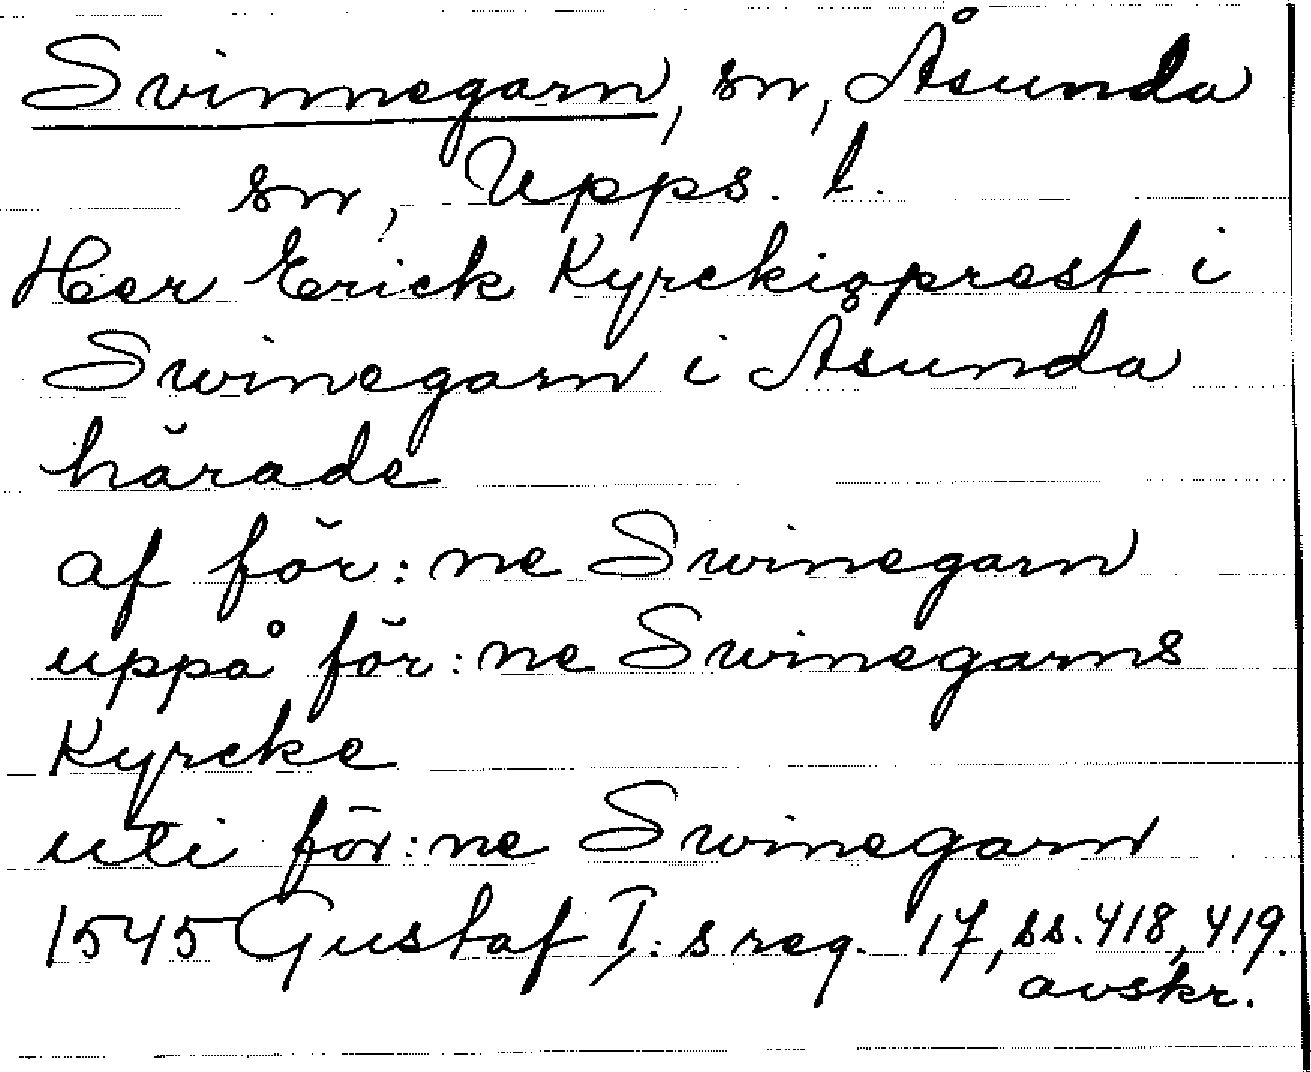 Svinnegarn, sn, Åsunda
sn, Upps. l.
Her Erick Kyrckioprest i
Swinegarn i Åsunda
härade
af för:ne Swinegarn
uppå för:ne Swinegarns
Kyrcke
uti för:ne Swinegarn
1545 Gustaf I:s reg. 17, ss. 418, 419.
avskr.